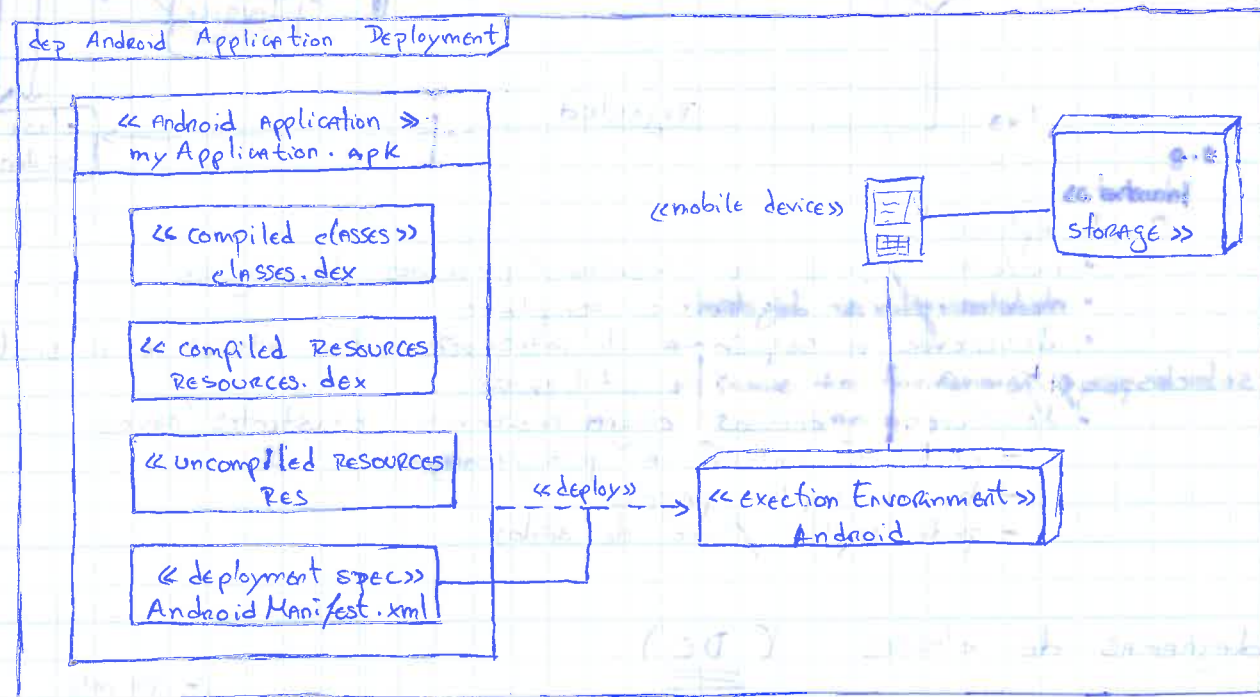 dep Android Application Deployment
<< Android Application >>
my Application. apk
<< compiled classes >>
classes.dex
<< compiled RESOURCES
RESOURCES. dex
<< uncompiled RESOURCES
RES
<< deployment spec >>
Android Manifest.xml
<< deploy >>
<< mobile device >>
STORAGE >>
<< Exection Envorinment >>
Android